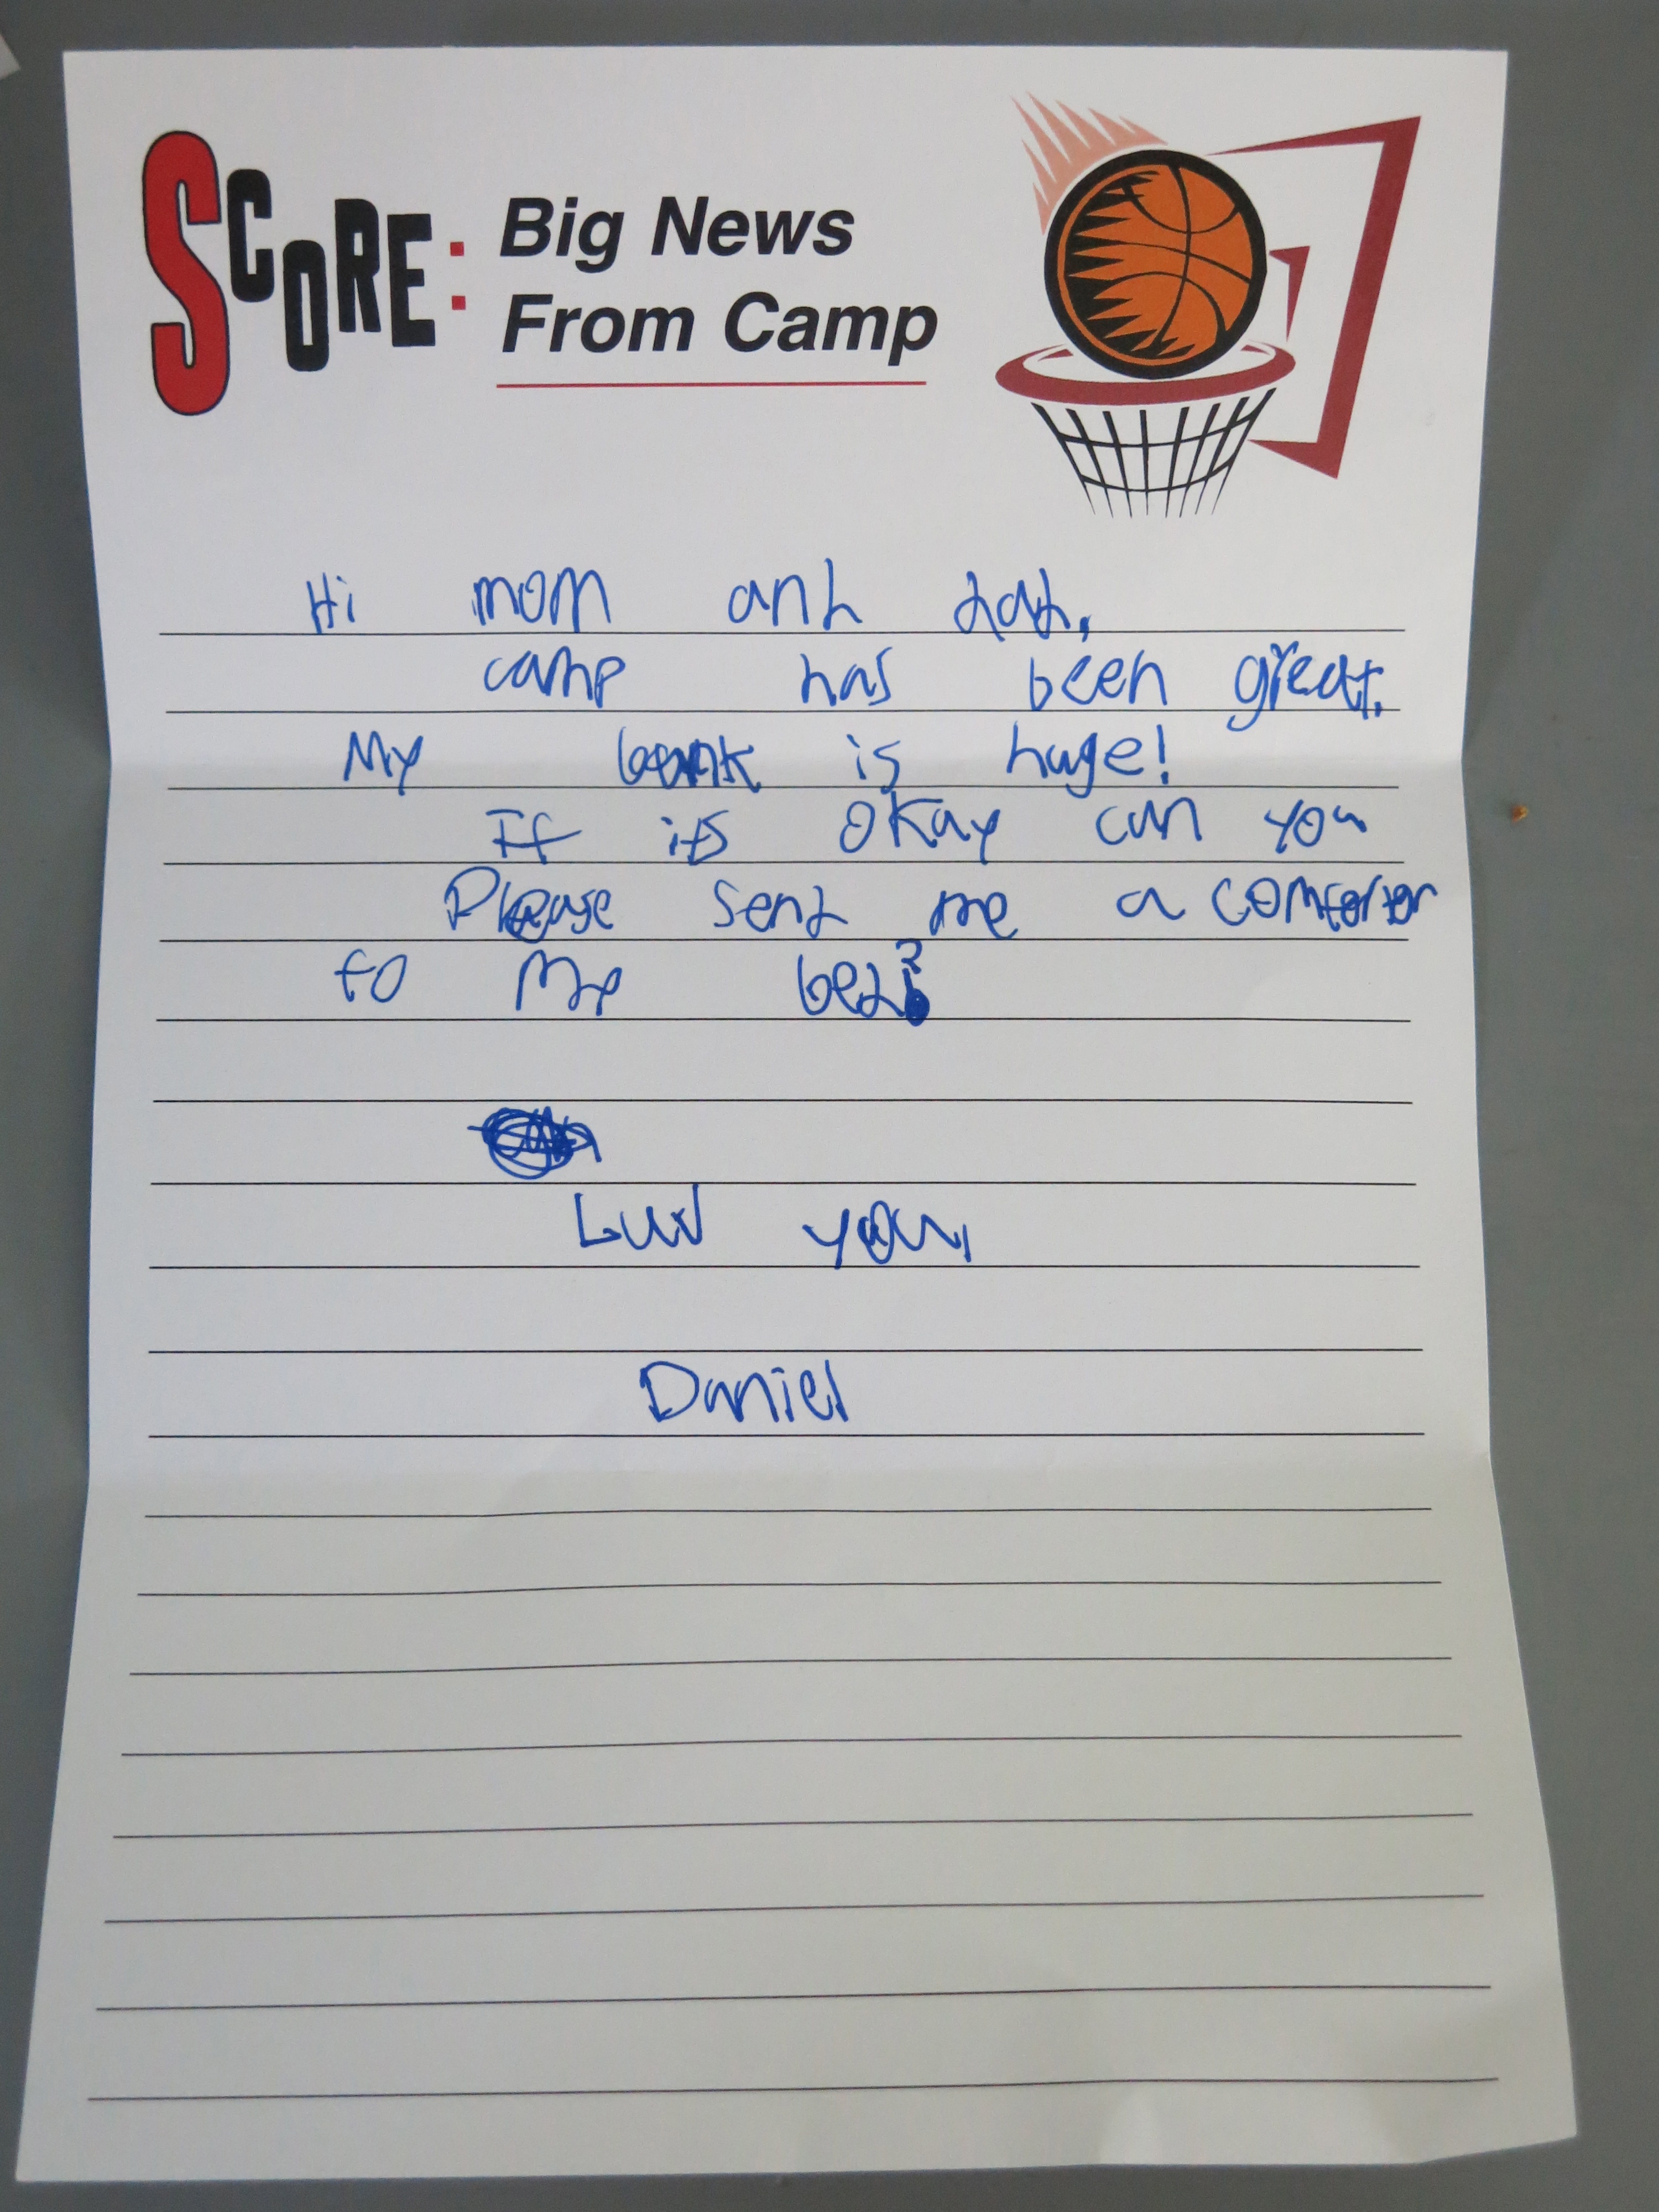 SCORE: Big News
From Camp
Hi mom and dad,
camp has been great.
My bunk is huge!
If its okay can you
Please send me a comforter
to my bed?
Luv you,
Daniel